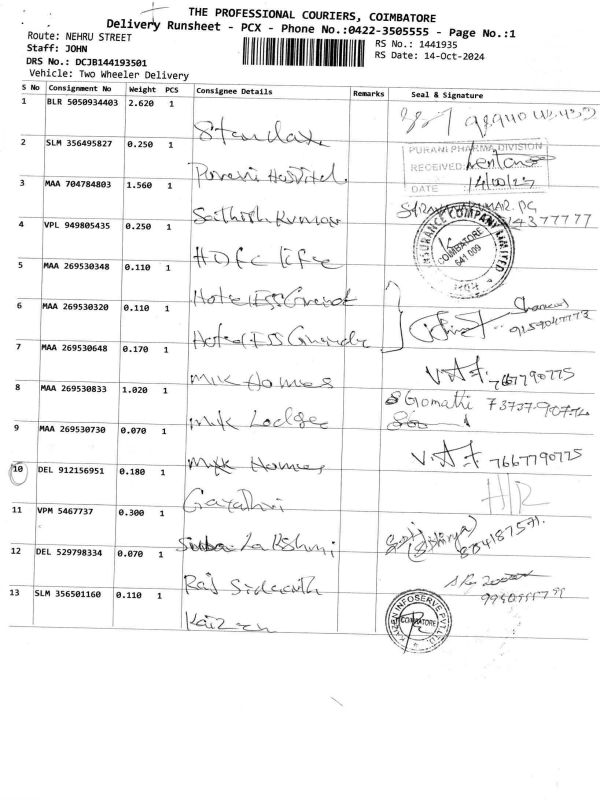 THE PROFESSIONAL COURIERS, COIMBATORE
Delivery Runsheet - PCX - Phone No.:0422-3505555 - Page No.:1
Route: NEHRU STREET
RS No.: 1441935
Staff: JOHN
RS Date: 14-Oct-2024
DRS No.: DCJB144193501
Vehicle: Two Wheeler Delivery
S No Consignment No Weight PCS Consignee Details Remarks Seal & Signature
1 BLR 5050934403 2.620 1
2 SLM 356495827 0.250 1 Purani Hospital
PURANI PHARMA DIVISION
RECEIVED:
DATE
3 MAA 704784803 1.560 1 Sathish Kumar
4 VPL 949805435 0.250 1 HDFC life
INSURANCE COMPANY LIMITED
COIMBATORE
641 009
5 MAA 269530348 0.110 1 Hotel ESS Grande
6 MAA 269530320 0.110 1 Hotel ESS Grande
7 MAA 269530648 0.170 1 MK Homes
7667790775
8 MAA 269530833 1.020 1 MK Lodge
S Gomathi
9 MAA 269530730 0.070 1 MK Homes
7667790775
10 DEL 912156951 0.180 1 Gayathri
HR
11 VPM 5467737 0.300 1 Lakshmi
12 DEL 529798334 0.070 1 Raj
13 SLM 356501160 0.110 1 Kaizen
KAIZEN INFOSERVE PVT LTD
COIMBATORE